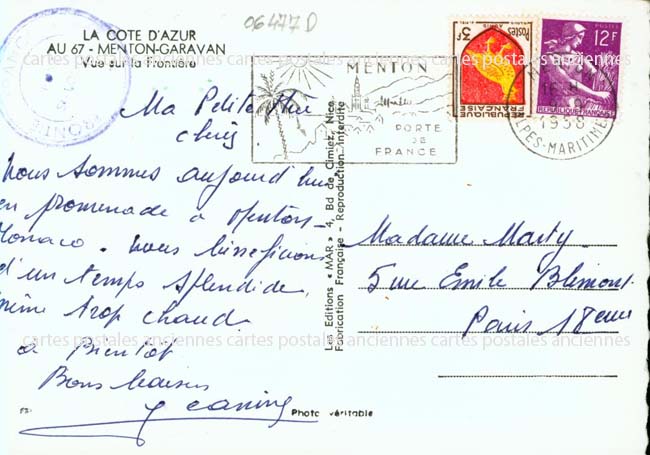 06477D
LA COTE D'AZUR
AU 67 - MENTON-GARAVAN
Vue sur la Frontière
MENTON
PORTE
DE
FRANCE
POSTES
3F
REPUBLIQUE
FRANÇAISE
POSTES
12F
REPUBLIQUE FRANÇAISE
1958
ALPES-MARITIMES
Ma Petite
chérie
Nous sommes aujourd'hui
en promenade à Menton-
Monaco. Nous bénéficions
d'un temps splendide,
même trop chaud
à Bientôt
Bons baisers
Jeanine
Les Editions «MAR» 4, Bd de Cimiez, Nice
Fabrication Française - Reproduction Interdite
Madame Marty
5 rue Emile Blémont
Paris 18eme
cartes postales anciennes cartes postales anciennes cartes postales anciennes
Photo véritable